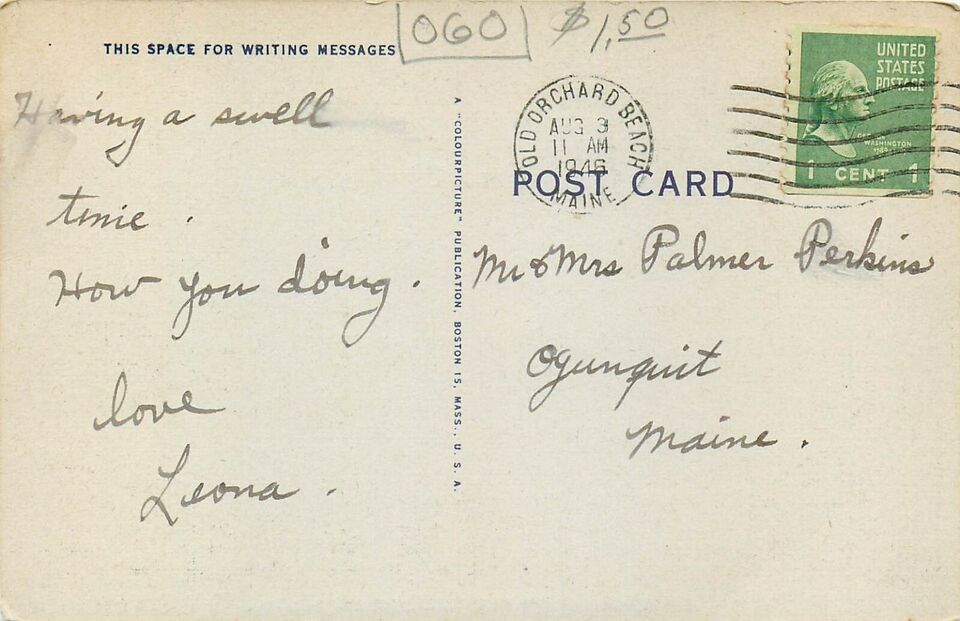 060 $1,50
THIS SPACE FOR WRITING MESSAGES
UNITED
STATES
POSTAGE
WASHINGTON
1 CENT 1
OLD ORCHARD BEACH
AUG 3
11 AM
1946
MAINE
POST CARD
A "COLOURPICTURE" PUBLICATION, BOSTON 15, MASS., U. S. A.
Having a swell
time .
How you doing .
love
Leona .
Mr & Mrs Palmer Perkins
Ogunquit
Maine .